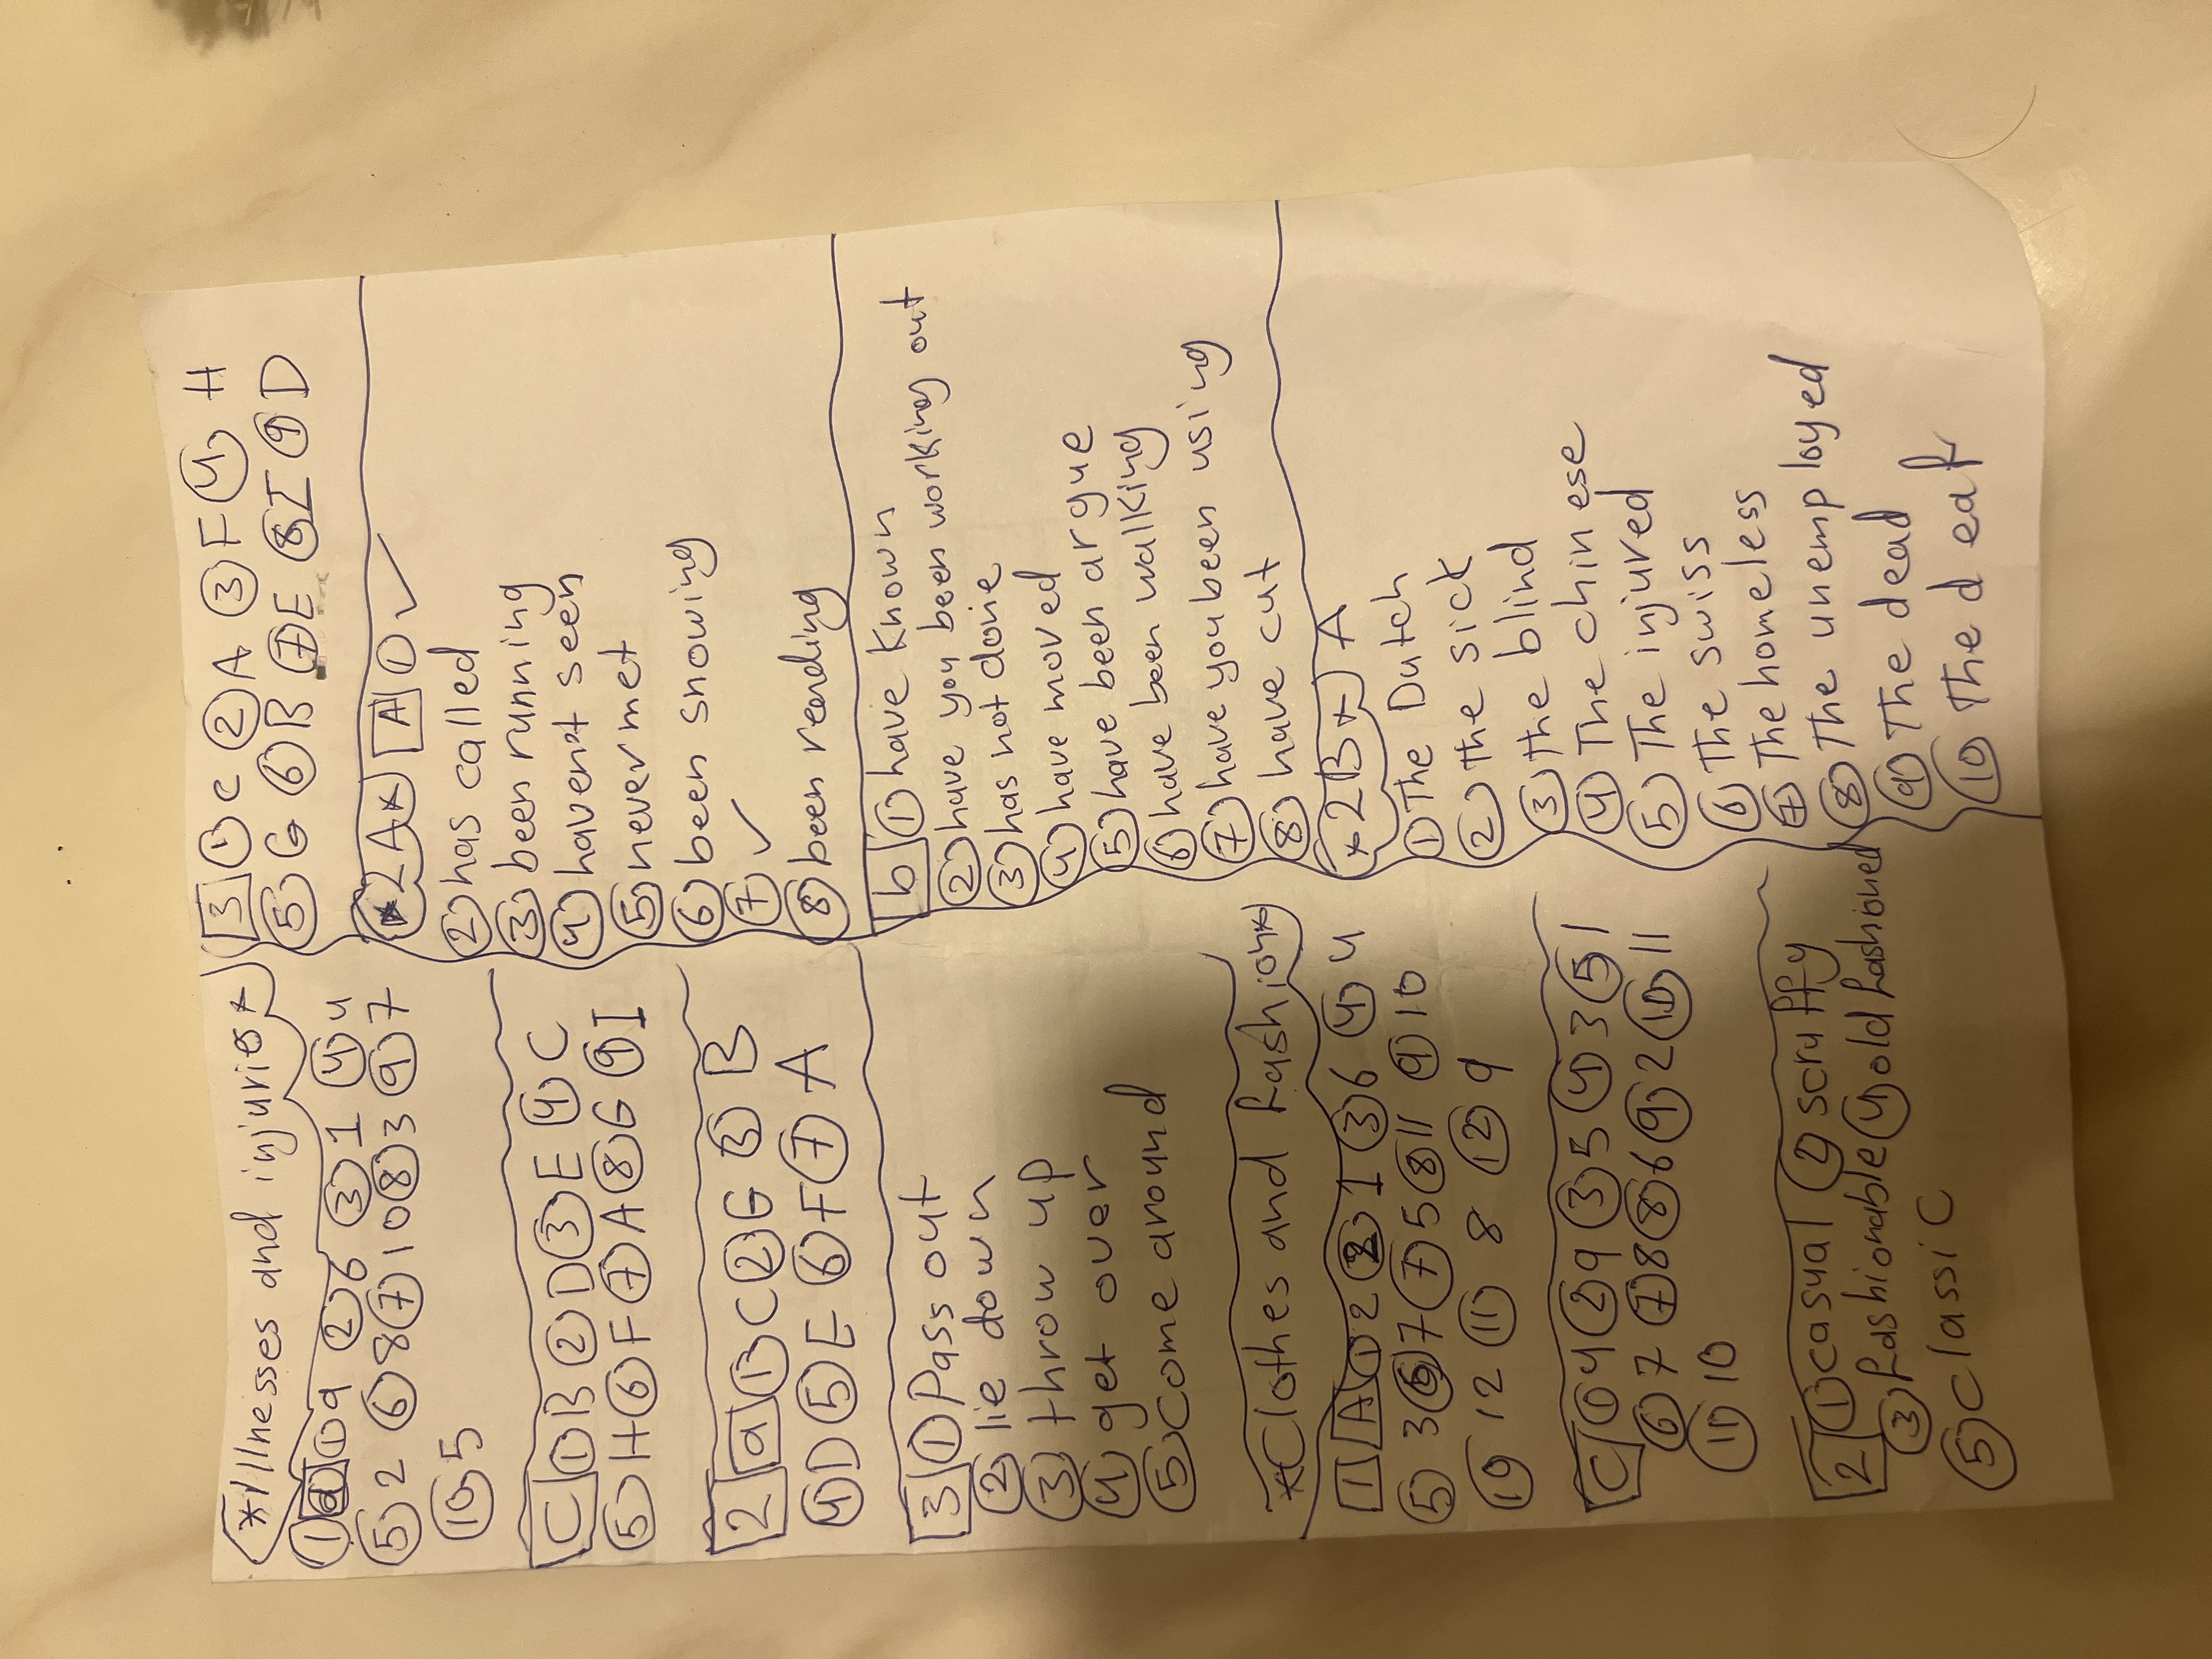 *Illnesses and injuries*
1 a ① 9 ② 6 ③ 1 ④ 4
⑤ 2 ⑥ 8 ⑦ 10 ⑧ 3 ⑨ 7
⑩ 5
C ① B ② D ③ E ④ C
⑤ H ⑥ F ⑦ A ⑧ G ⑨ I
2 a ① C ② G ③ B
④ D ⑤ E ⑥ F ⑦ A
3 ① Pass out
② lie down
③ throw up
④ get over
⑤ Come around
*Clothes and fashion*
1 A ① 2 ② 1 ③ 6 ④ 4
⑤ 3 ⑥ 7 ⑦ 5 ⑧ 11 ⑨ 10
⑩ 12 ⑪ 8 ⑫ 9
C ① 4 ② 9 ③ 5 ④ 3 ⑤ 1
⑥ 7 ⑦ 8 ⑧ 6 ⑨ 2 ⑩ 11
⑪ 10
2 ① casual ② scruffy
③ fashionable ④ old fashioned
⑤ classic
3 ① C ② A ③ F ④ H
⑤ G ⑥ B ⑦ E ⑧ I ⑨ D
*2A* A ① ✓
② has called
③ been running
④ havent seen
⑤ never met
⑥ been snowing
⑦ ✓
⑧ been reading
b ① have known
② have you been working out
③ has not done
④ have moved
⑤ have been argue
⑥ have been wallking
⑦ have you been using
⑧ have cut
*2B* A
① The Dutch
② the sick
③ the blind
④ The chinese
⑤ The injured
⑥ The swiss
⑦ The homeless
⑧ The unemployed
⑨ The dead
⑩ The deaf